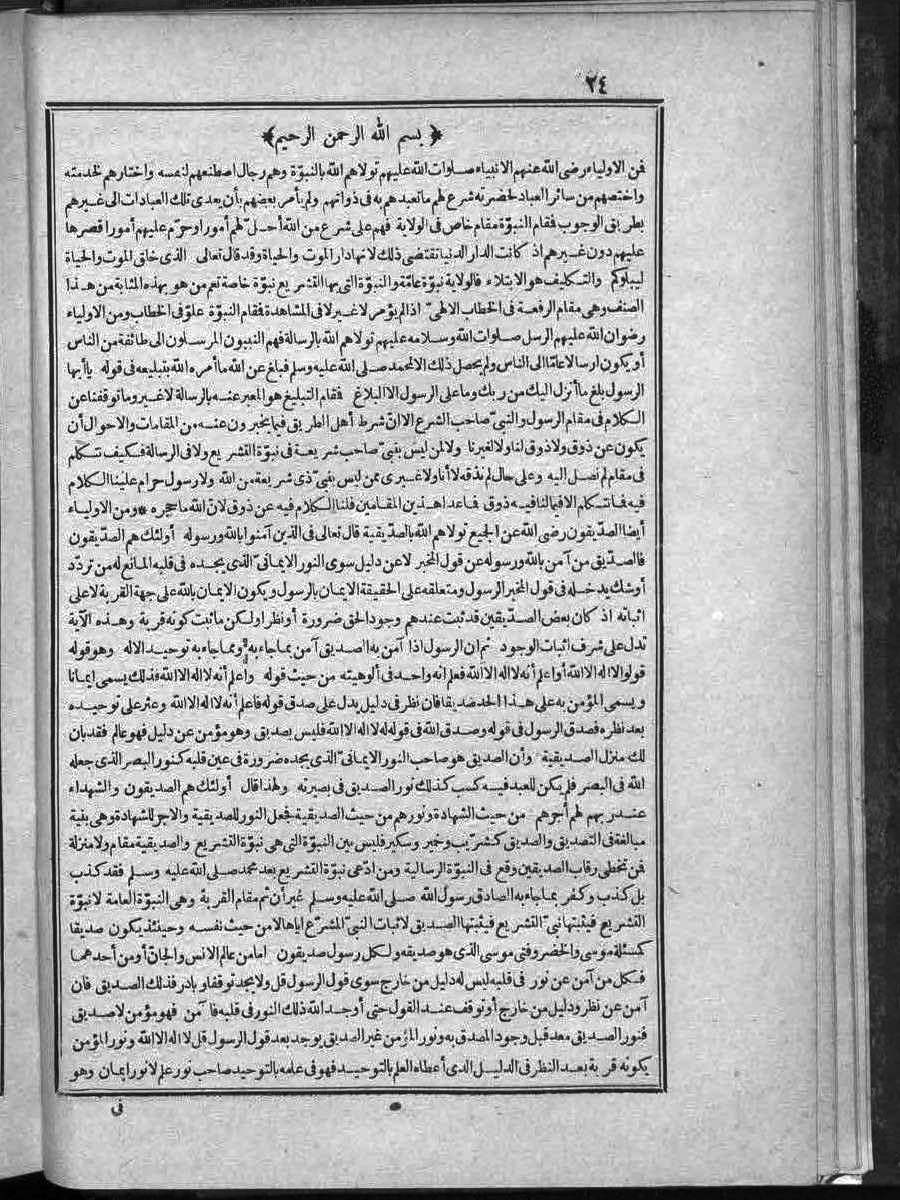 ٢٤
﴿ بسم الله الرحمن الرحيم ﴾
فمن الاولياء رضى الله عنهم الانبياء صلوات الله عليهم تولاهم الله بالنبوّة وهم رجال اصطنعهم لنفسه واختارهم لخدمته
واختصهم من سائر العباد لحضرته شرع لهم ما تعبدهم به فى ذواتهم ولم يأمر بعضهم بأن يعدى تلك العبادات الى غيرهم
بطريق الوجوب فمقام النبوّة مقام خاص فى الولاية فهم على شرع من الله أحلّ لهم أمورا وحرّم عليهم أمورا قصرها
عليهم دون غيرهم اذ كانت الدار الدنيا تقتضى ذلك لانها دار الموت والحياة وقد قال تعالى الذى خلق الموت والحياة
ليبلوكم والتكليف هو الابتلاء فالولاية نبوّة عامّة والنبوّة التى بها التشريع نبوّة خاصة تعم من هو بهذه المثابة من هذا
الصنف وهى مقام الرفعة فى الخطاب الالهىّ اذا لم يؤمر لا غير لا فى المشاهدة فمقام النبوّة علوّ فى الخطاب ومن الاولياء
رضوان الله عليهم الرسل صلوات الله وسلامه عليهم تولاهم الله بالرسالة فهم النبيون المرسلون الى طائفة من الناس
أو يكون ارسالا عامّا الى الناس ولم يحصل ذلك الا لمحمد صلى الله عليه وسلم فبلغ عن الله ما أمره الله بتبليغه فى قوله يا أيها
الرسول بلغ ما أنزل اليك من ربك وما على الرسول الا البلاغ فمقام التبليغ هو المعبر عنه بالرسالة لا غير وما توقفنا عن
الكلام فى مقام الرسول والنبىّ صاحب الشرع الا انّ شرط أهل الطريق فيما يخبرون عنه من المقامات والاحوال أن
يكون عن ذوق ولا ذوق لنا ولا لغيرنا ولا لمن ليس بنبىّ صاحب شريعة فى نبوّة التشريع ولا فى الرسالة فكيف نتكلم
فى مقام لم نصل اليه وعلى حال لم نذقه لا أنا ولا غيرى ممن ليس بنبىّ ذى شريعة من الله ولا رسول حرام علينا الكلام
فيه فما نتكلم الا فيما لنا فيه ذوق فما عدا هذين المقامين فلنا الكلام فيه عن ذوق لان الله ما حجره * ومن الاولياء
أيضا الصدّيقون رضى الله عن الجميع تولاهم الله بالصدّيقية قال تعالى فى الذين آمنوا بالله ورسوله أولئك هم الصدّيقون
فالصدّيق من آمن بالله ورسوله عن قول المخبر لا عن دليل سوى النور الايمانىّ الذى يجده فى قلبه المانع له من تردّد
أو شك يدخله فى قول المخبر الرسول ومتعلقه على الحقيقة الايمان بالرسول ويكون الايمان بالله على جهة القربة لا على
اثباته اذ كان بعض الصدّيقين قد ثبت عندهم وجود الحق ضرورة أو نظرا ولكن ما ثبت كونه قربة وهذه الآية
تدل على شرف اثبات الوجود ثم ان الرسول اذا آمن به الصديق آمن بما جاء به ومما جاء به توحيد الاله وهو قوله
قولوا لا اله الا الله أو اعلم أنه لا اله الا الله فعلم أنه واحد فى ألوهيته من حيث قوله واعلم أنه لا اله الا الله فذلك يسمى ايمانا
ويسمى المؤمن به على هذا الحد صديقا فان نظر فى دليل يدل على صدق قوله فاعلم أنه لا اله الا الله وعثر على توحيده
بعد نظره فصدق الرسول فى قوله وصدق الله فى قوله له لا اله الا الله فليس بصديق وهو مؤمن عن دليل فهو عالم فقد بان
لك منزل الصديقية وأن الصديق هو صاحب النور الايمانىّ الذى يجده ضرورة فى عين قلبه كنور البصر الذى جعله
الله فى البصر فلم يكن للعبد فيه كسب كذلك نور الصديق فى بصيرته ولهذا قال أولئك هم الصديقون والشهداء
عند ربهم لهم أجرهم من حيث الشهادة ونورهم من حيث الصديقية فجعل النور للصديقية والاجر للشهادة وهى بنية
مبالغة فى التصديق والصديق كشرّيب وخمير وسكير فليس بين النبوّة التى هى نبوّة التشريع والصديقية مقام ولا منزلة
فمن تخطى رقاب الصديقين وقع فى النبوّة الرسالية ومن ادّعى نبوّة التشريع بعد محمد صلى الله عليه وسلم فقد كذب
بل كذب وكفر بما جاء به الصادق رسول الله صلى الله عليه وسلم غير أن ثم مقام القربة وهى النبوّة العامة لا نبوّة
التشريع فيثبتها نبىّ التشريع فيثبتها الصديق لاثبات النبىّ المشرّع اياها لا من حيث نفسه وحينئذ يكون صديقا
كمسئلة موسى والخضر وفتى موسى الذى هو صديقه ولكل رسول صديقون اما من عالم الانس والجانّ أو من أحدهما
فكل من آمن عن نور فى قلبه ليس له دليل من خارج سوى قول الرسول قل ولا يجد توقفا وبادر فذلك الصديق فان
آمن عن نظر ودليل من خارج أو توقف عند القول حتى أوجد الله ذلك النور فى قلبه فآمن فهو مؤمن لا صديق
فنور الصديق معد قبل وجود المصدق به ونور المؤمن غير الصديق يوجد بعد قول الرسول قل لا اله الا الله ونور المؤمن
يكونه قربة بعد النظر فى الدليل الذى أعطاه العلم بالتوحيد فهو فى علمه بالتوحيد صاحب نور علم لا نور ايمان وهو
فى